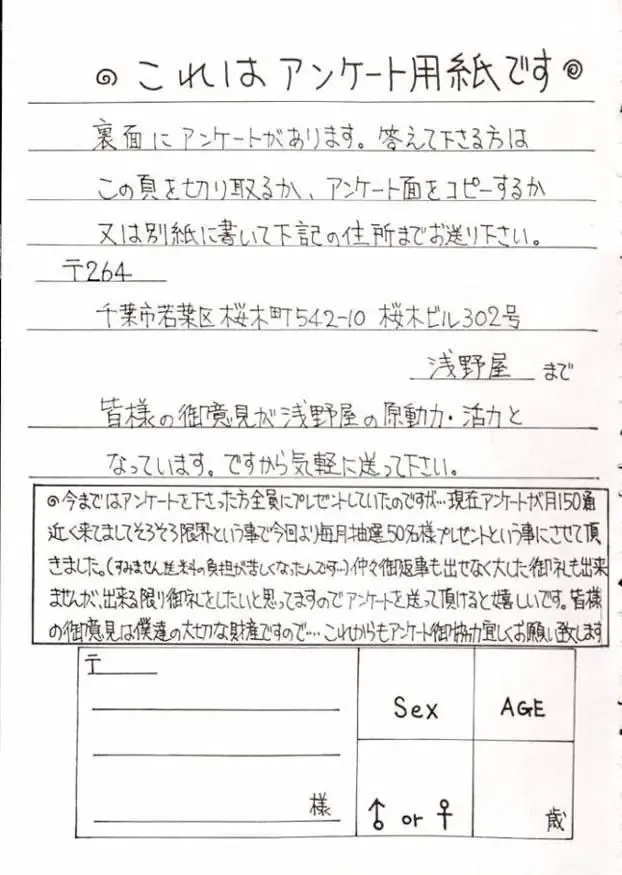 これはアンケート用紙です
裏面にアンケートがあります。答えて下さる方は
この頁を切り取るか、アンケート面をコピーするか
又は別紙に書いて下記の住所までお送り下さい。
〒264
千葉市若葉区桜木町542-10 桜木ビル302号
浅野屋 まで
皆様の御意見が浅野屋の原動力・活力と
なっています。ですから気軽に送って下さい。
◎今まではアンケートを下さった方全員にプレゼントしていたのですが…現在アンケートが月150通
近く来てましてそろそろ限界という事で今回より毎月抽選50名様プレゼントという事にさせて頂
きました。(すみません送料の負担が苦しくなったんです…)仲々御返事も出せなく大した御礼も出来
ませんが、出来る限り御礼をしたいと思ってますのでアンケートを送って頂けると嬉しいです。皆様
の御意見は僕達の大切な財産ですので…これからもアンケート御協力宜しくお願い致します
〒
様
Sex
AGE
♂ or ♀
歳